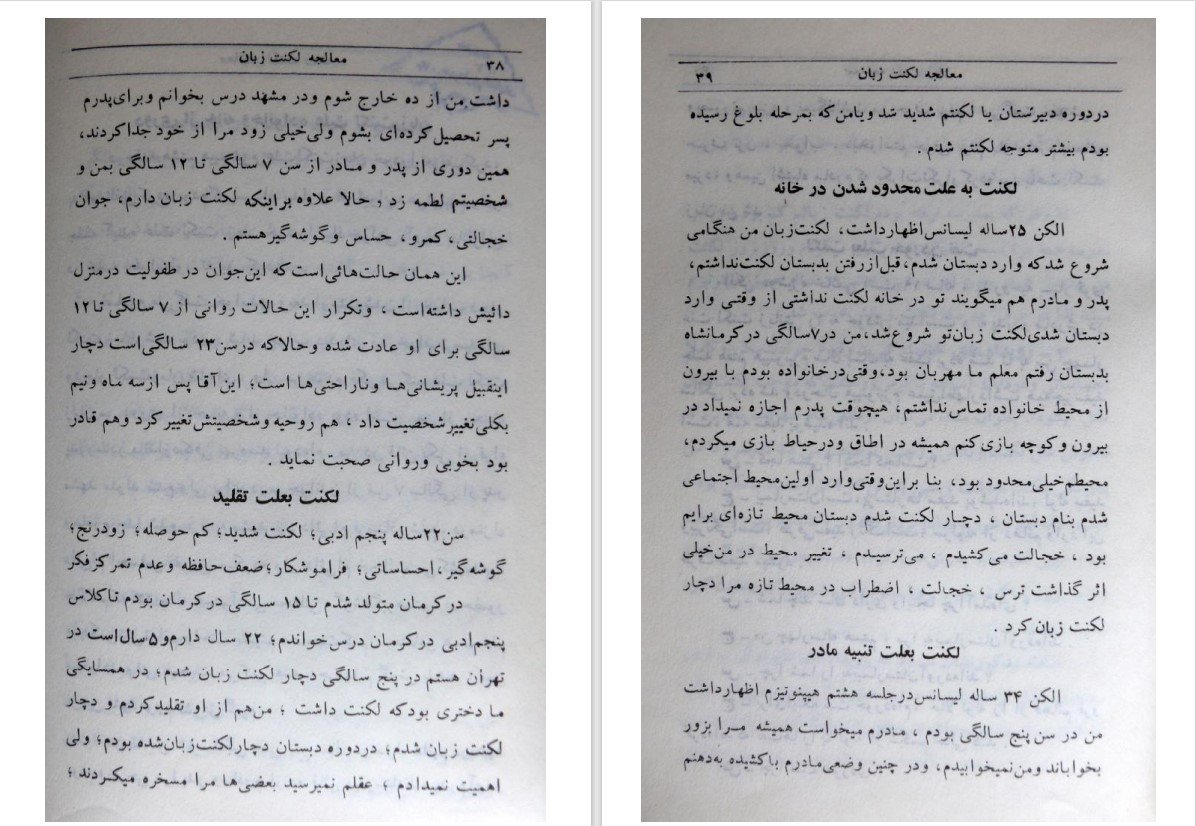 معالجه لکنت زبان ۳۸
داشت من از ده خارج شوم ودر مشهد درس بخوانم وبرای پدرم
پسر تحصیل کرده‌ای بشوم ولی خیلی زود مرا از خود جدا کردند،
همین دوری از پدر و مادر از سن ۷ سالگی تا ۱۲ سالگی بمن و
شخصیتم لطمه زد , حالا علاوه براینکه لکنت زبان دارم، جوان
خجالتی، کمرو، حساس و گوشه گیر هستم .
این همان حالت‌هائی است که این جوان در طفولیت درمنزل
دائیش داشته است ، وتکرار این حالات روانی از ۷ سالگی تا ۱۲
سالگی برای او عادت شده و حالا که درسن ۲۳ سالگی است دچار
اینقبیل پریشانی‌ها و ناراحتی‌ها است؛ این آقا پس از سه ماه ونیم
بکلی تغییر شخصیت داد ، هم روحیه و شخصیتش تغییر کرد وهم قادر
بود بخوبی وروانی صحبت نماید .
لکنت بعلت تقلید
سن ۲۲ ساله پنجم ادبی؛ لکنت شدید؛ کم حوصله؛ زودرنج؛
گوشه گیر، احساساتی؛ فراموشکار؛ ضعف حافظه وعدم تمرکز فکر
درکرمان متولد شدم تا ۱۵ سالگی درکرمان بودم تا کلاس
پنجم ادبی درکرمان درس خواندم؛ ۲۲ سال دارم و ۵ سال است در
تهران هستم در پنج سالگی دچار لکنت زبان شدم؛ در همسایگی
ما دختری بود که لکنت داشت ؛ من هم از او تقلید کردم و دچار
لکنت زبان شدم؛ دردوره دبستان دچار لکنت زبان شده بودم؛ ولی
اهمیت نمیدادم ؛ عقلم نمیرسید بعضی‌ها مرا مسخره میکردند ؛
معالجه لکنت زبان ۳۹
دردوره دبیرستان یا لکنتم شدید شد و یا من که بمرحله بلوغ رسیده
بودم بیشتر متوجه لکنتم شدم .
لکنت به علت محدود شدن در خانه
الکن ۲۵ ساله لیسانس اظهار داشت، لکنت زبان من هنگامی
شروع شد که وارد دبستان شدم، قبل از رفتن بدبستان لکنت نداشتم،
پدر و مادرم هم میگویند تو در خانه لکنت نداشتی از وقتی وارد
دبستان شدی لکنت زبان تو شروع شد، من در ۷ سالگی در کرمانشاه
بدبستان رفتم معلم ما مهربان بود، وقتی درخانواده بودم با بیرون
از محیط خانواده تماس نداشتم، هیچوقت پدرم اجازه نمیداد در
بیرون و کوچه بازی کنم همیشه در اطاق ودرحیاط بازی میکردم،
محیطم خیلی محدود بود، بنا براین وقتی وارد اولین محیط اجتماعی
شدم بنام دبستان ، دچار لکنت شدم دبستان محیط تازه‌ای برایم
بود ، خجالت می‌کشیدم ، می‌ترسیدم ، تغییر محیط در من خیلی
اثر گذاشت ترس ، خجالت ، اضطراب در محیط تازه مرا دچار
لکنت زبان کرد .
لکنت بعلت تنبیه مادر
الکن ۳۴ ساله لیسانس درجلسه هشتم هیپنوتیزم اظهار داشت
من در سن پنج سالگی بودم ، مادرم میخواست همیشه مرا بزور
بخواباند ومن نمیخوابیدم، ودر چنین وضعی مادرم با کشیده به دهنم